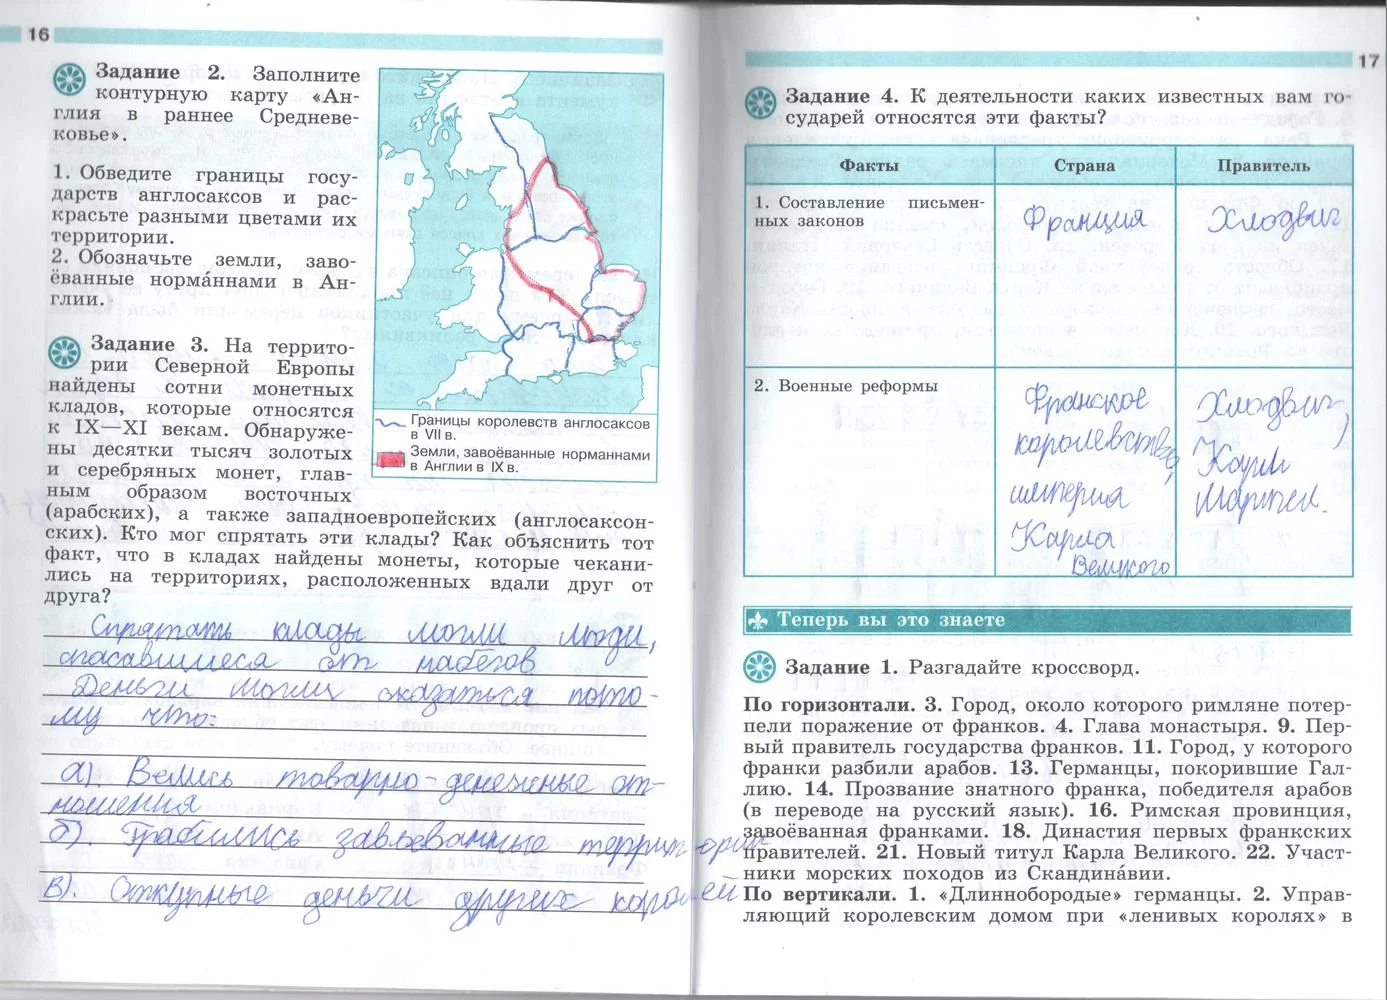 16
Задание 2. Заполните
контурную карту «Ан-
глия в раннее Средневе-
ковье».
1. Обведите границы госу-
дарств англосаксов и рас-
красьте разными цветами их
территории.
2. Обозначьте земли, заво-
ёванные норма́ннами в Ан-
глии.
Границы королевств англосаксов
в VII в.
Земли, завоёванные норманнами
в Англии в IX в.
Задание 3. На террито-
рии Северной Европы
найдены сотни монетных
кладов, которые относятся
к IX—XI векам. Обнаруже-
ны десятки тысяч золотых
и серебряных монет, глав-
ным образом восточных
(арабских), а также западноевропейских (англосаксон-
ских). Кто мог спрятать эти клады? Как объяснить тот
факт, что в кладах найдены монеты, которые чекани-
лись на территориях, расположенных вдали друг от
друга?
Спрятать клады могли люди,
спасавшиеся от набегов
Деньги могли оказаться пото-
му что:
а). Велись товарно-денежные от-
ношения
б). Грабились завоёванные территории
в). Откупные деньги других королей
17
Задание 4. К деятельности каких известных вам го-
сударей относятся эти факты?
Факты Страна Правитель
1. Составление письмен-
ных законов
Франция Хлодвиг
2. Военные реформы
Франское
королевство,
империя
Карла
Великого
Хлодвиг,
Карл
Мартел.
Теперь вы это знаете
Задание 1. Разгадайте кроссворд.
По горизонтали. 3. Город, около которого римляне потер-
пели поражение от франков. 4. Глава монастыря. 9. Пер-
вый правитель государства франков. 11. Город, у которого
франки разбили арабов. 13. Германцы, покорившие Гал-
лию. 14. Прозвание знатного франка, победителя арабов
(в переводе на русский язык). 16. Римская провинция,
завоёванная франками. 18. Династия первых франкских
правителей. 21. Новый титул Карла Великого. 22. Участ-
ники морских походов из Скандина́вии.
По вертикали. 1. «Длиннобородые» германцы. 2. Управ-
ляющий королевским домом при «ленивых королях» в